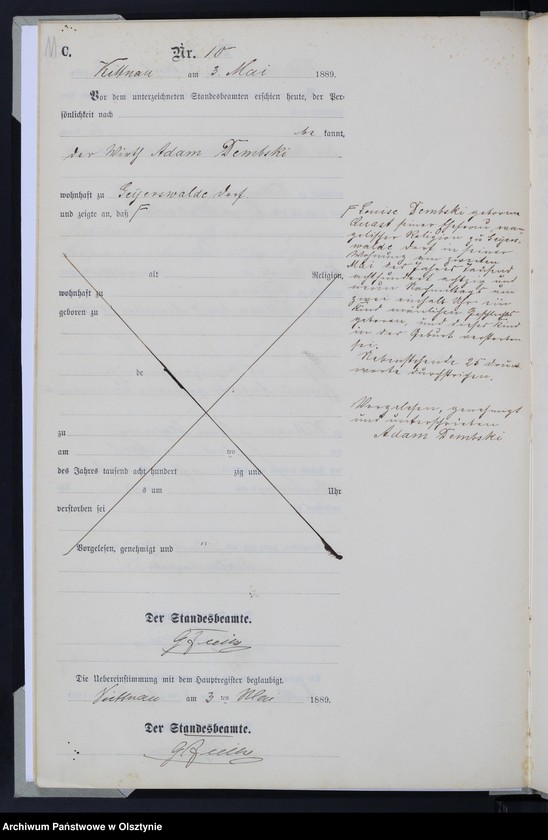 C.
Nr. 10
Kittnau am 3. Mai 1889.
Vor dem unterzeichneten Standesbeamten erschien heute, der Per-
sönlichkeit nach
be kannt,
der Wirth Adam Dembski
wohnhaft zu Geyerswalde Dorf
und zeigte an, daß F
alt Religion,
wohnhaft zu
geboren zu
de
zu
am ten
des Jahres tausend acht hundert zig und
s um Uhr
verstorben sei
Vorgelesen, genehmigt und
F Louise Dembski geborene
seiner Ehefrau, evan-
gelischer Religion zu Geyers-
walde Dorf in seiner
Wohnung am zweiten
Mai des Jahres tausend
achthundert achtzig und
neun Nachmittags um
zwei einhalb Uhr ein
Kind männlichen Geschlechts
geboren, und dieses Kind
in der Geburt verstorben
sei.
Nebenstehende 25 Druck-
worte durchstrichen.
Vorgelesen, genehmigt
und unterschrieben
Adam Dembski
Der Standesbeamte.
Die Uebereinstimmung mit dem Hauptregister beglaubigt.
Kittnau am 3 ten Mai 1889.
Der Standesbeamte.
Archiwum Państwowe w Olsztynie